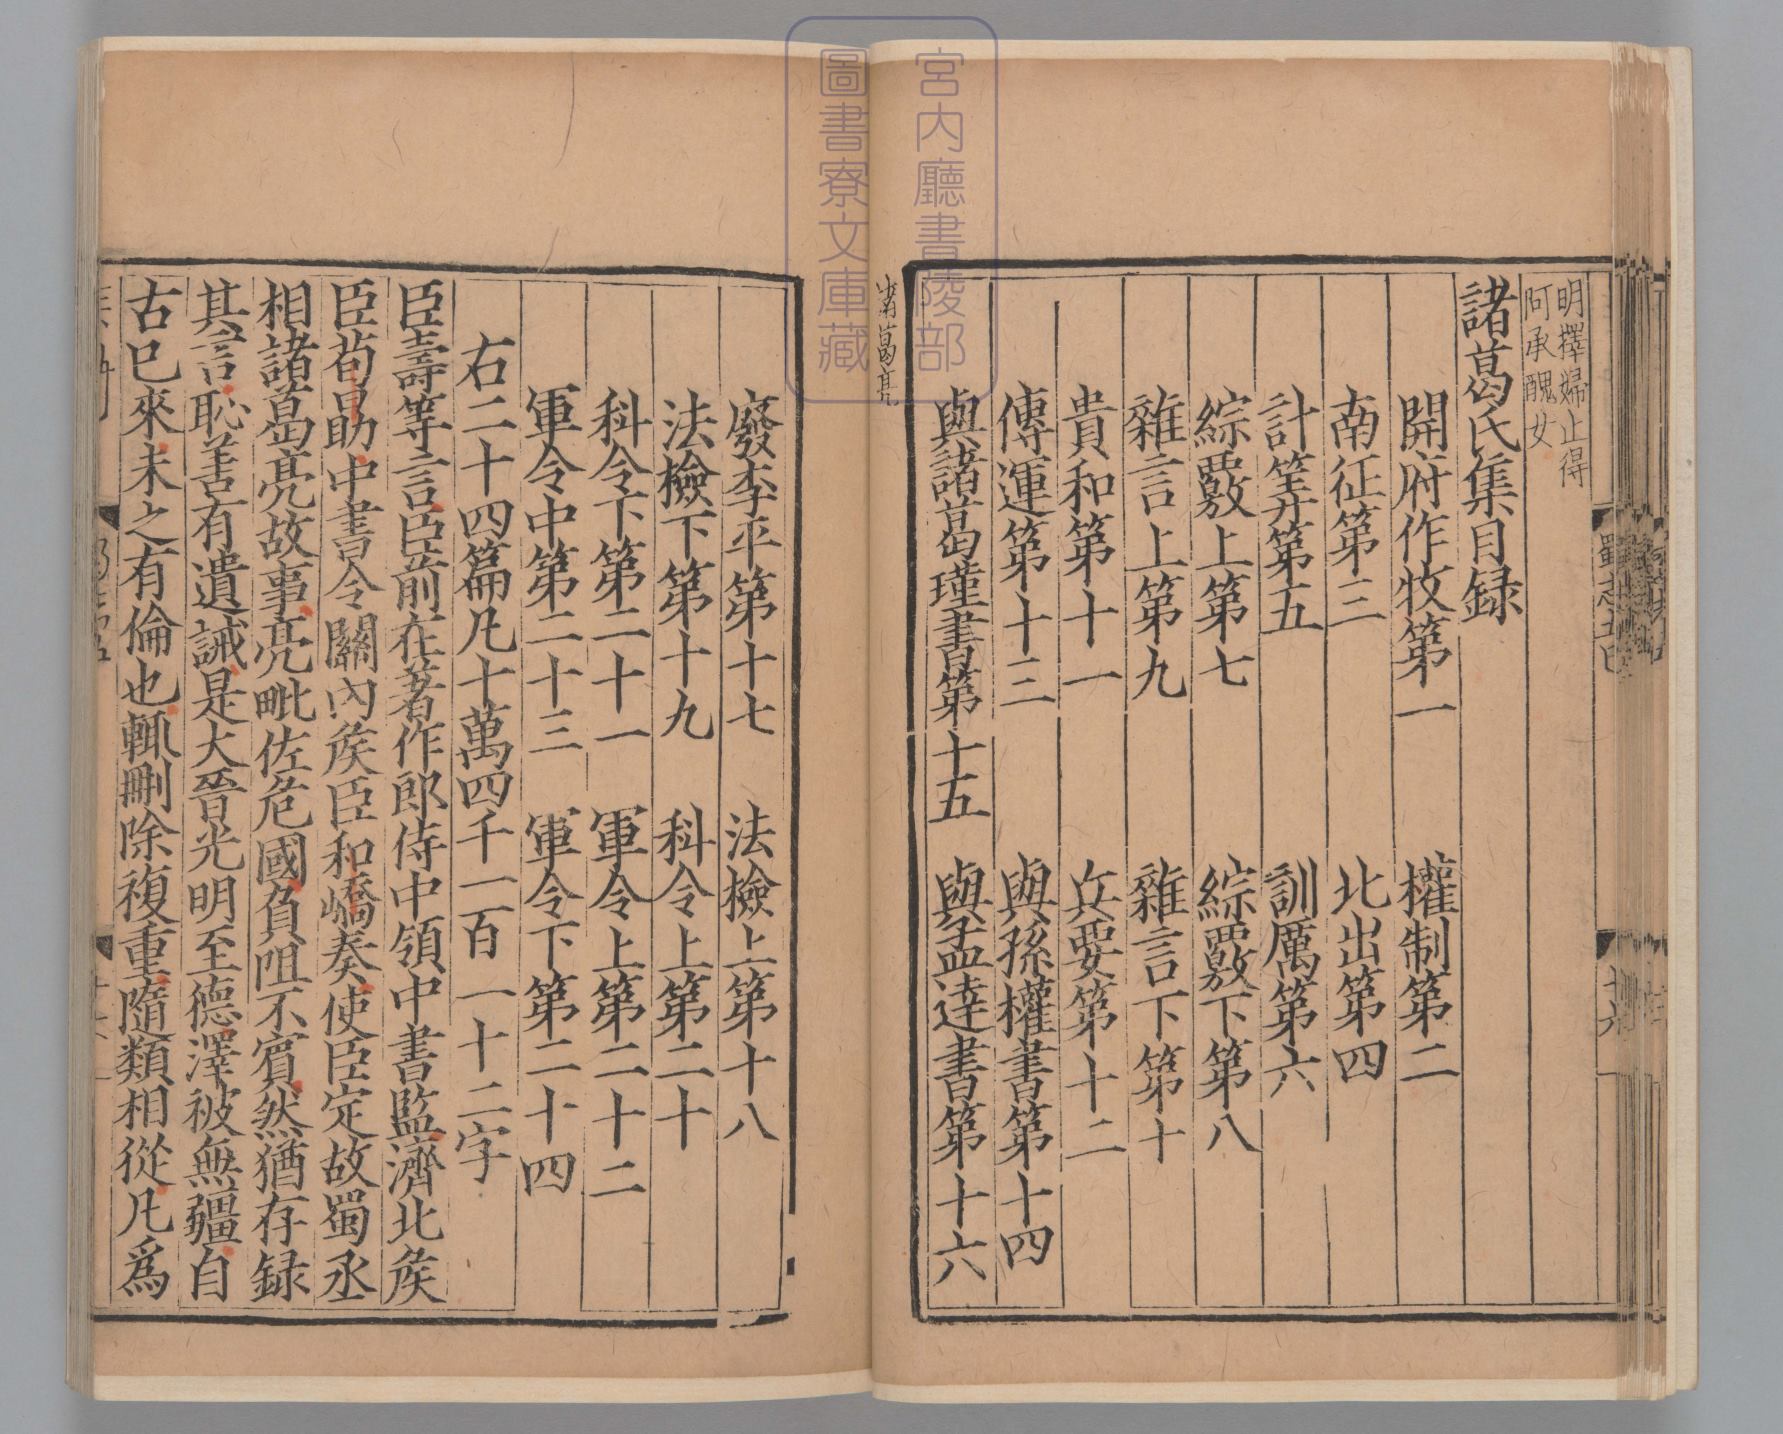 明擇婦止得
阿承醜女
諸葛氏集目録
開府作牧第一 權制第二
南征第三 北出第四
計筭第五 訓厲第六
綜覈上第七 綜覈下第八
雜言上第九 雜言下第十
貴和第十一 兵要第十二
傳運第十三 與孫權書第十四
與諸葛瑾書第十五 與孟達書第十六
諸葛亮
廢李平第十七 法檢上第十八
法檢下第十九 科令上第二十
科令下第二十一 軍令上第二十二
軍令中第二十三 軍令下第二十四
右二十四篇凡十萬四千一百一十二字
臣壽等言臣前在著作郎侍中領中書監濟北矦
臣荀勗中書令關内矦臣和嶠奏使臣定故蜀丞
相諸葛亮故事亮毗佐危國負阻不賔然猶存録
其言恥善有遺誠是大晉光明至德澤被無疆自
古已來未之有倫也輒刪除複重隨類相從凡爲
宮内廳書陵部
圖書寮文庫藏
蜀志五
十六